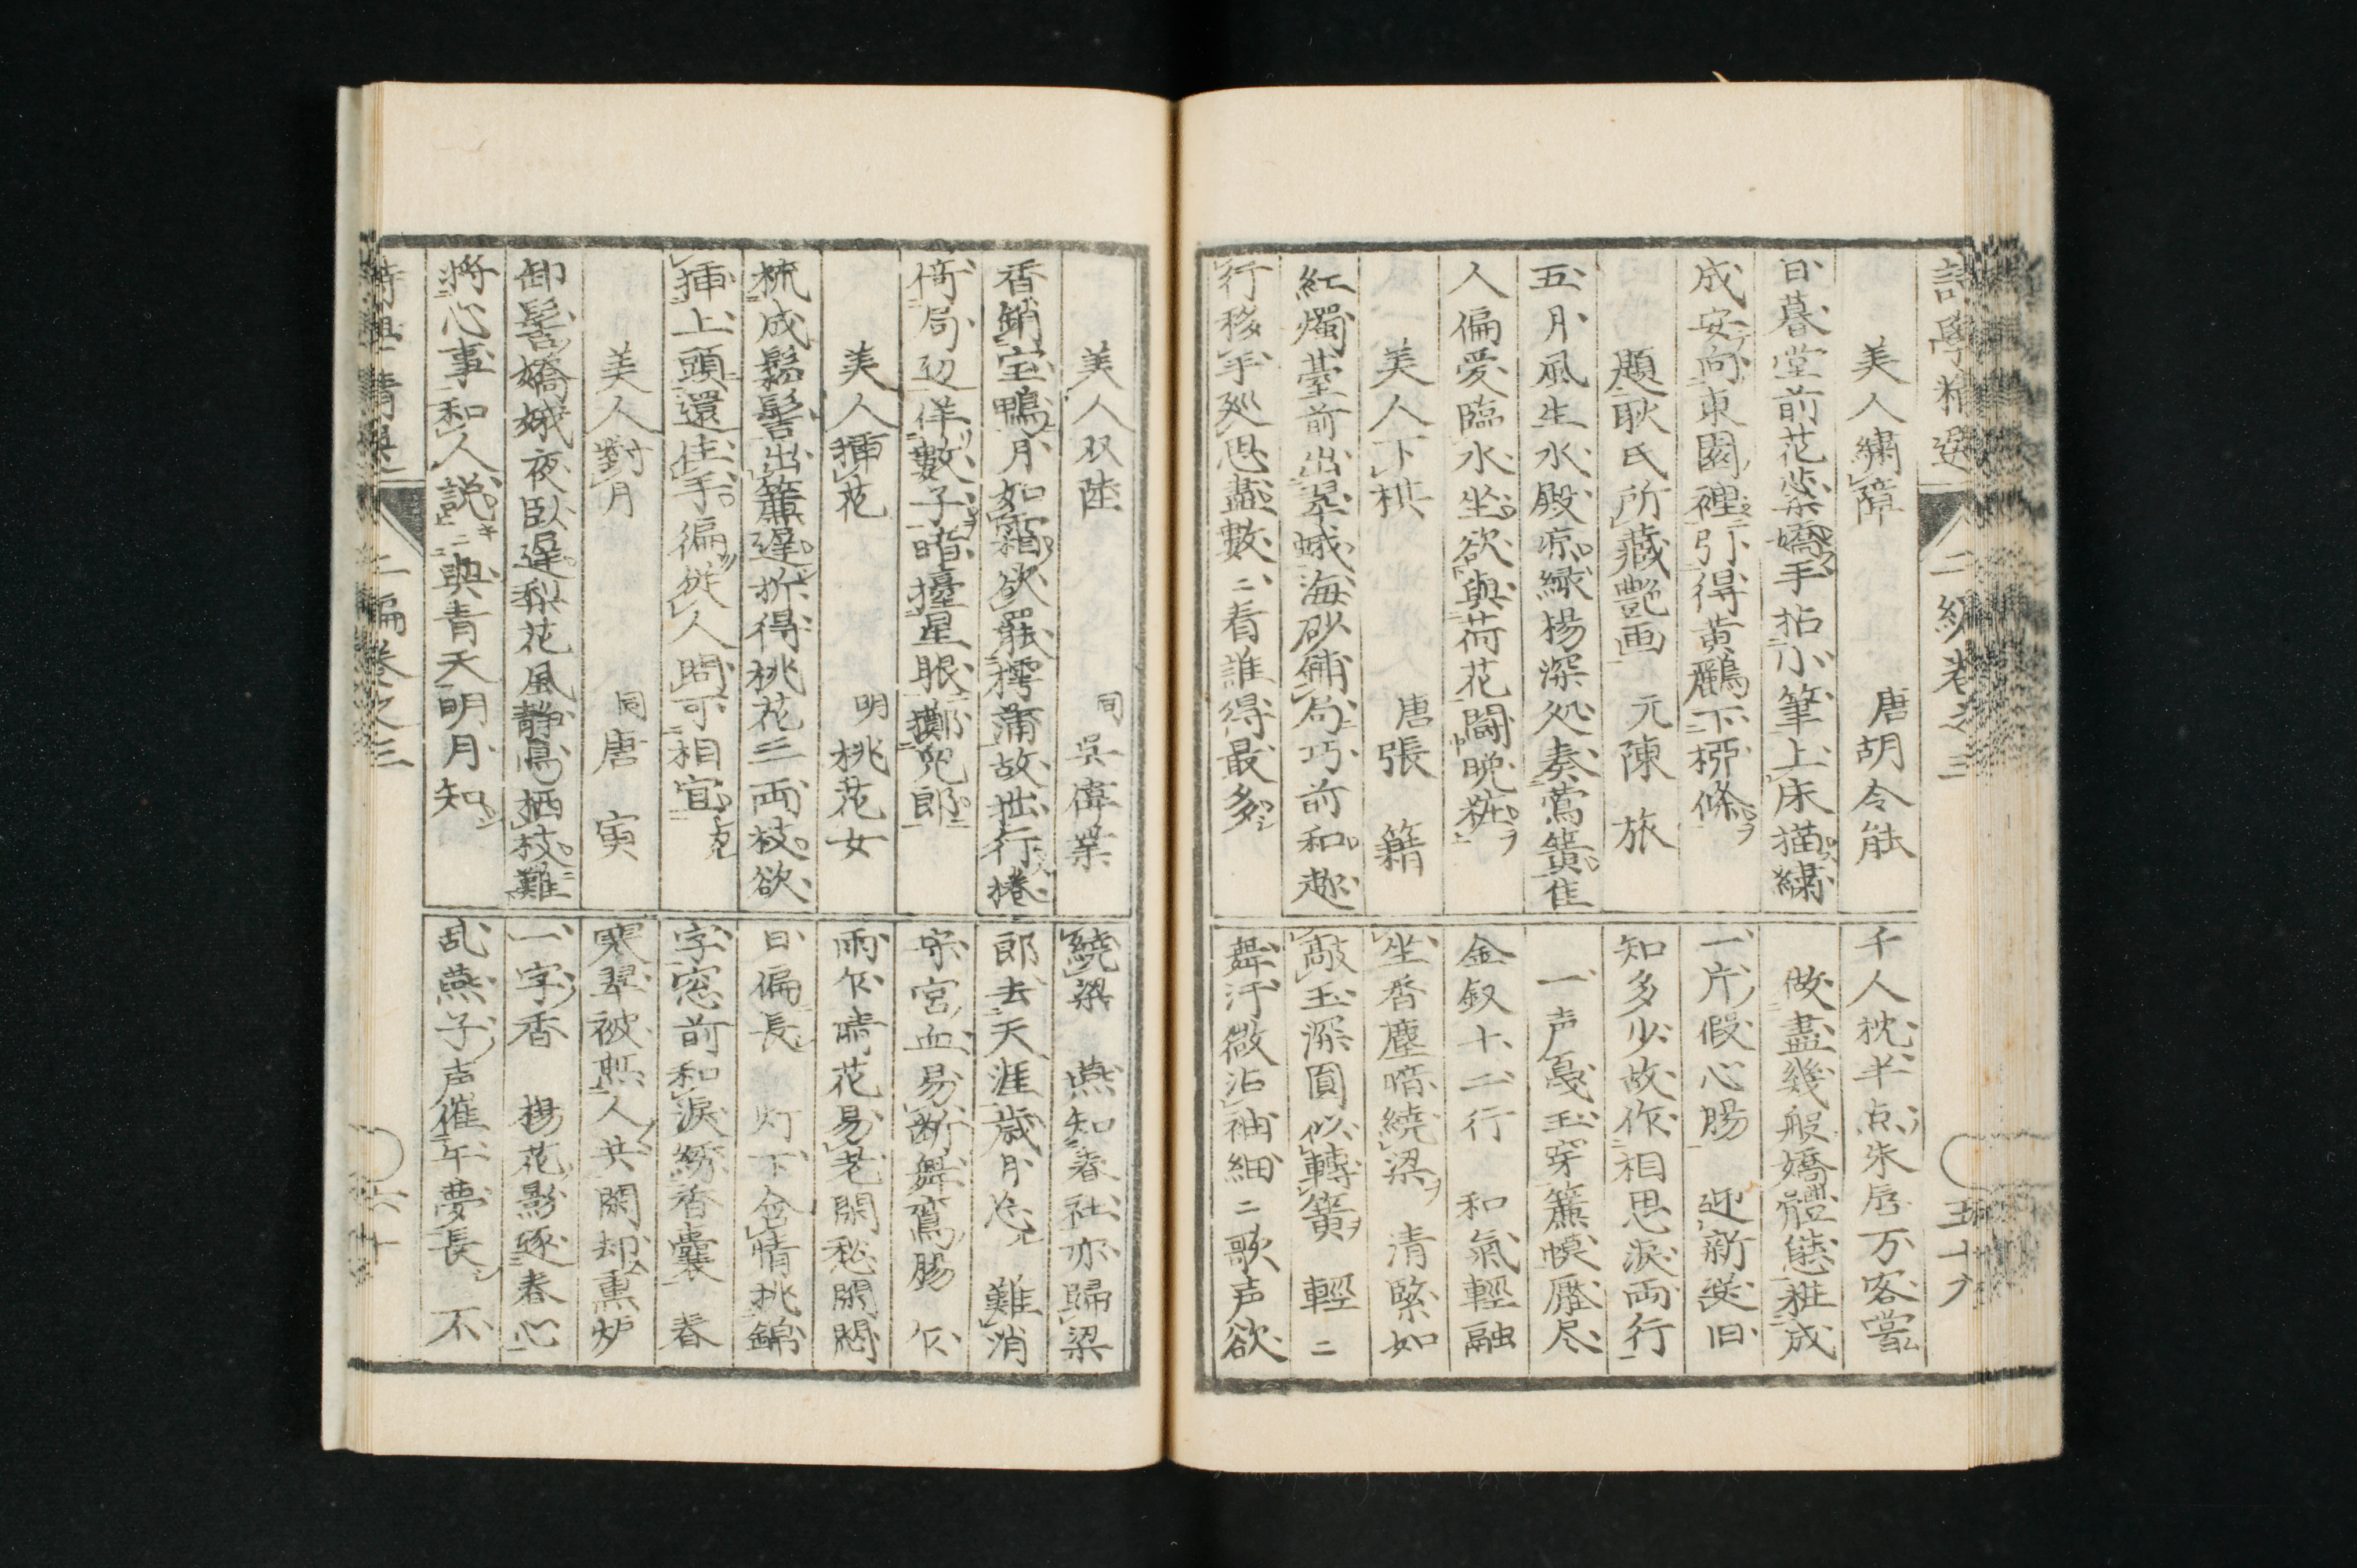 詩學精選 二編卷之三 五十九
美人繡障 唐胡令能
日暮堂前花蕊嬌手拈小筆上床描繡
成安向東園裡引得黄鸝下柳條
題耿氏所藏艶画 元陳旅
五月風生水殿凉緑楊深処奏鶯簧隹
人偏愛臨水坐欲與荷花闘晩粧
美人下棋 唐張籍
紅燭臺前出翠蛾海砂鋪局巧前和趂
行移手巡思盡數二看誰得最多
千人枕半点朱唇万客嘗
做盡幾般嬌體態粧成
一片假心腸 迎新送旧
知多少故作相思涙両行
一声戛玉穿簾幙歴尽
金釵十二行 和氣輕融
坐香塵暗繞梁 清緊如
敲玉深圓似轉簧 輕二
舞汗微沾袖細二歌声欲
美人双陸 同呉偉業
香銷宝鴨月如霜欲罷樗蒲故拙行捲
倚局辺佯數子暗擡星眼擲兒郎
美人挿花 明桃花女
梳成鬆髻出簾遅折得桃花三両枝欲
挿上頭還住手徧従人問可相宜
美人對月 同唐寅
卸髻嬌娥夜臥遅梨花風靜鳥栖枝難
將心事和人説二與青天明月知
繞梁 燕知春社亦歸梁
郎去天涯歳月忩 難消
守宮血易断舞鸞腸 乍
雨乍晴花易老閑愁閑悶
日偏長 灯下含情挑錦
字窓前和涙綉香囊 春
寒翠被無人共閑却熏炉
一字香 楊花影逐春心
乱燕子声催午夢長 不
二編卷之三 六十